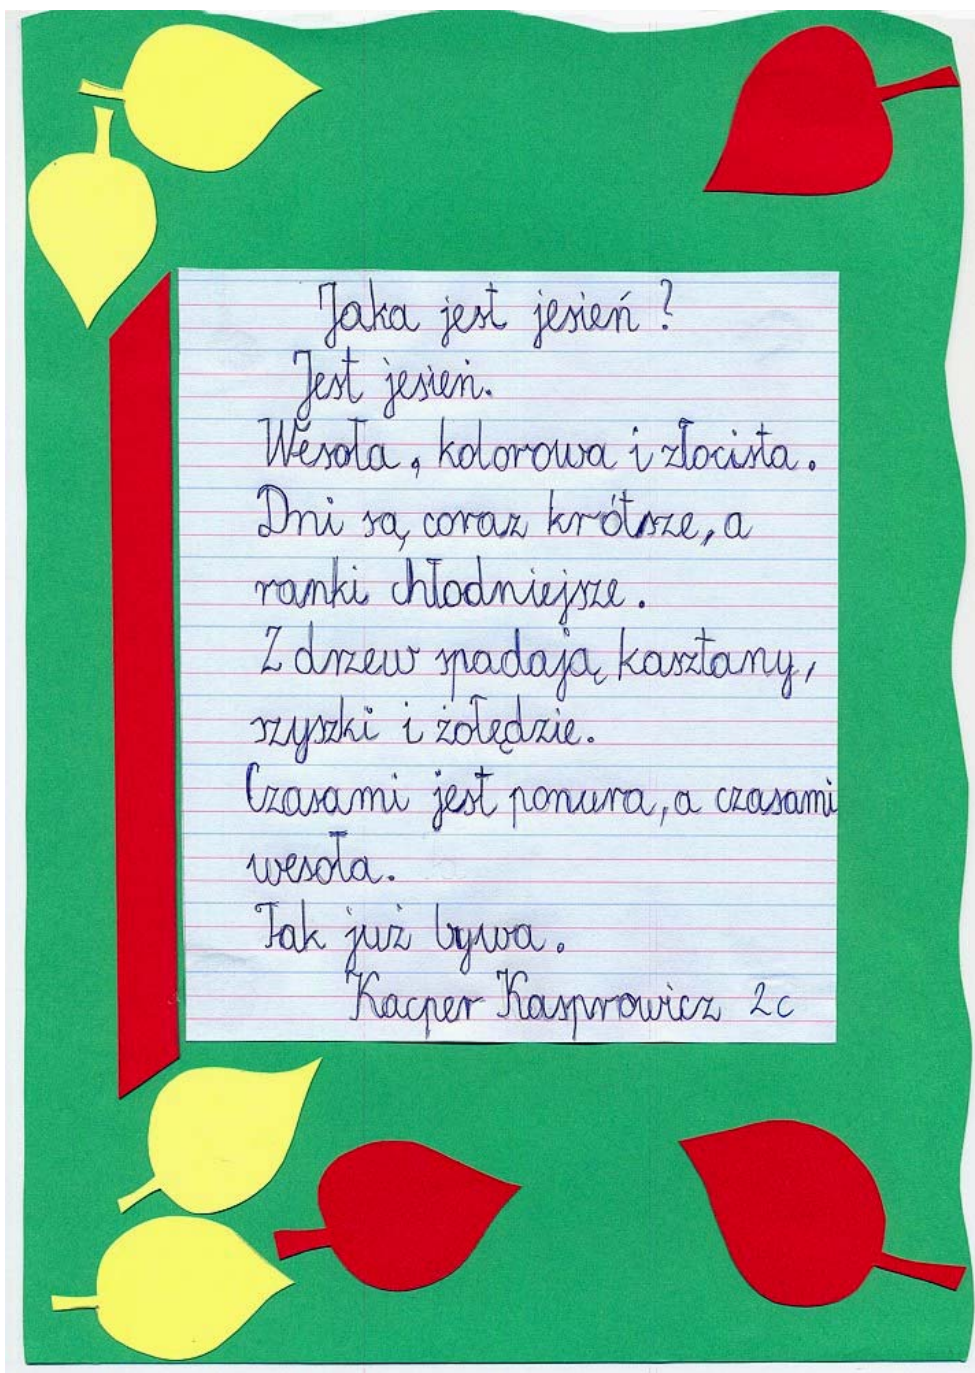 Jaka jest jesień?
Jest jesień.
Wesoła, kolorowa i złocista.
Dni są coraz krótsze, a
ranki chłodniejsze.
Z drzew spadają kasztany,
szyszki i żołędzie.
Czasami jest ponura, a czasami
wesoła.
Tak już bywa.
Kacper Kasprowicz 2c